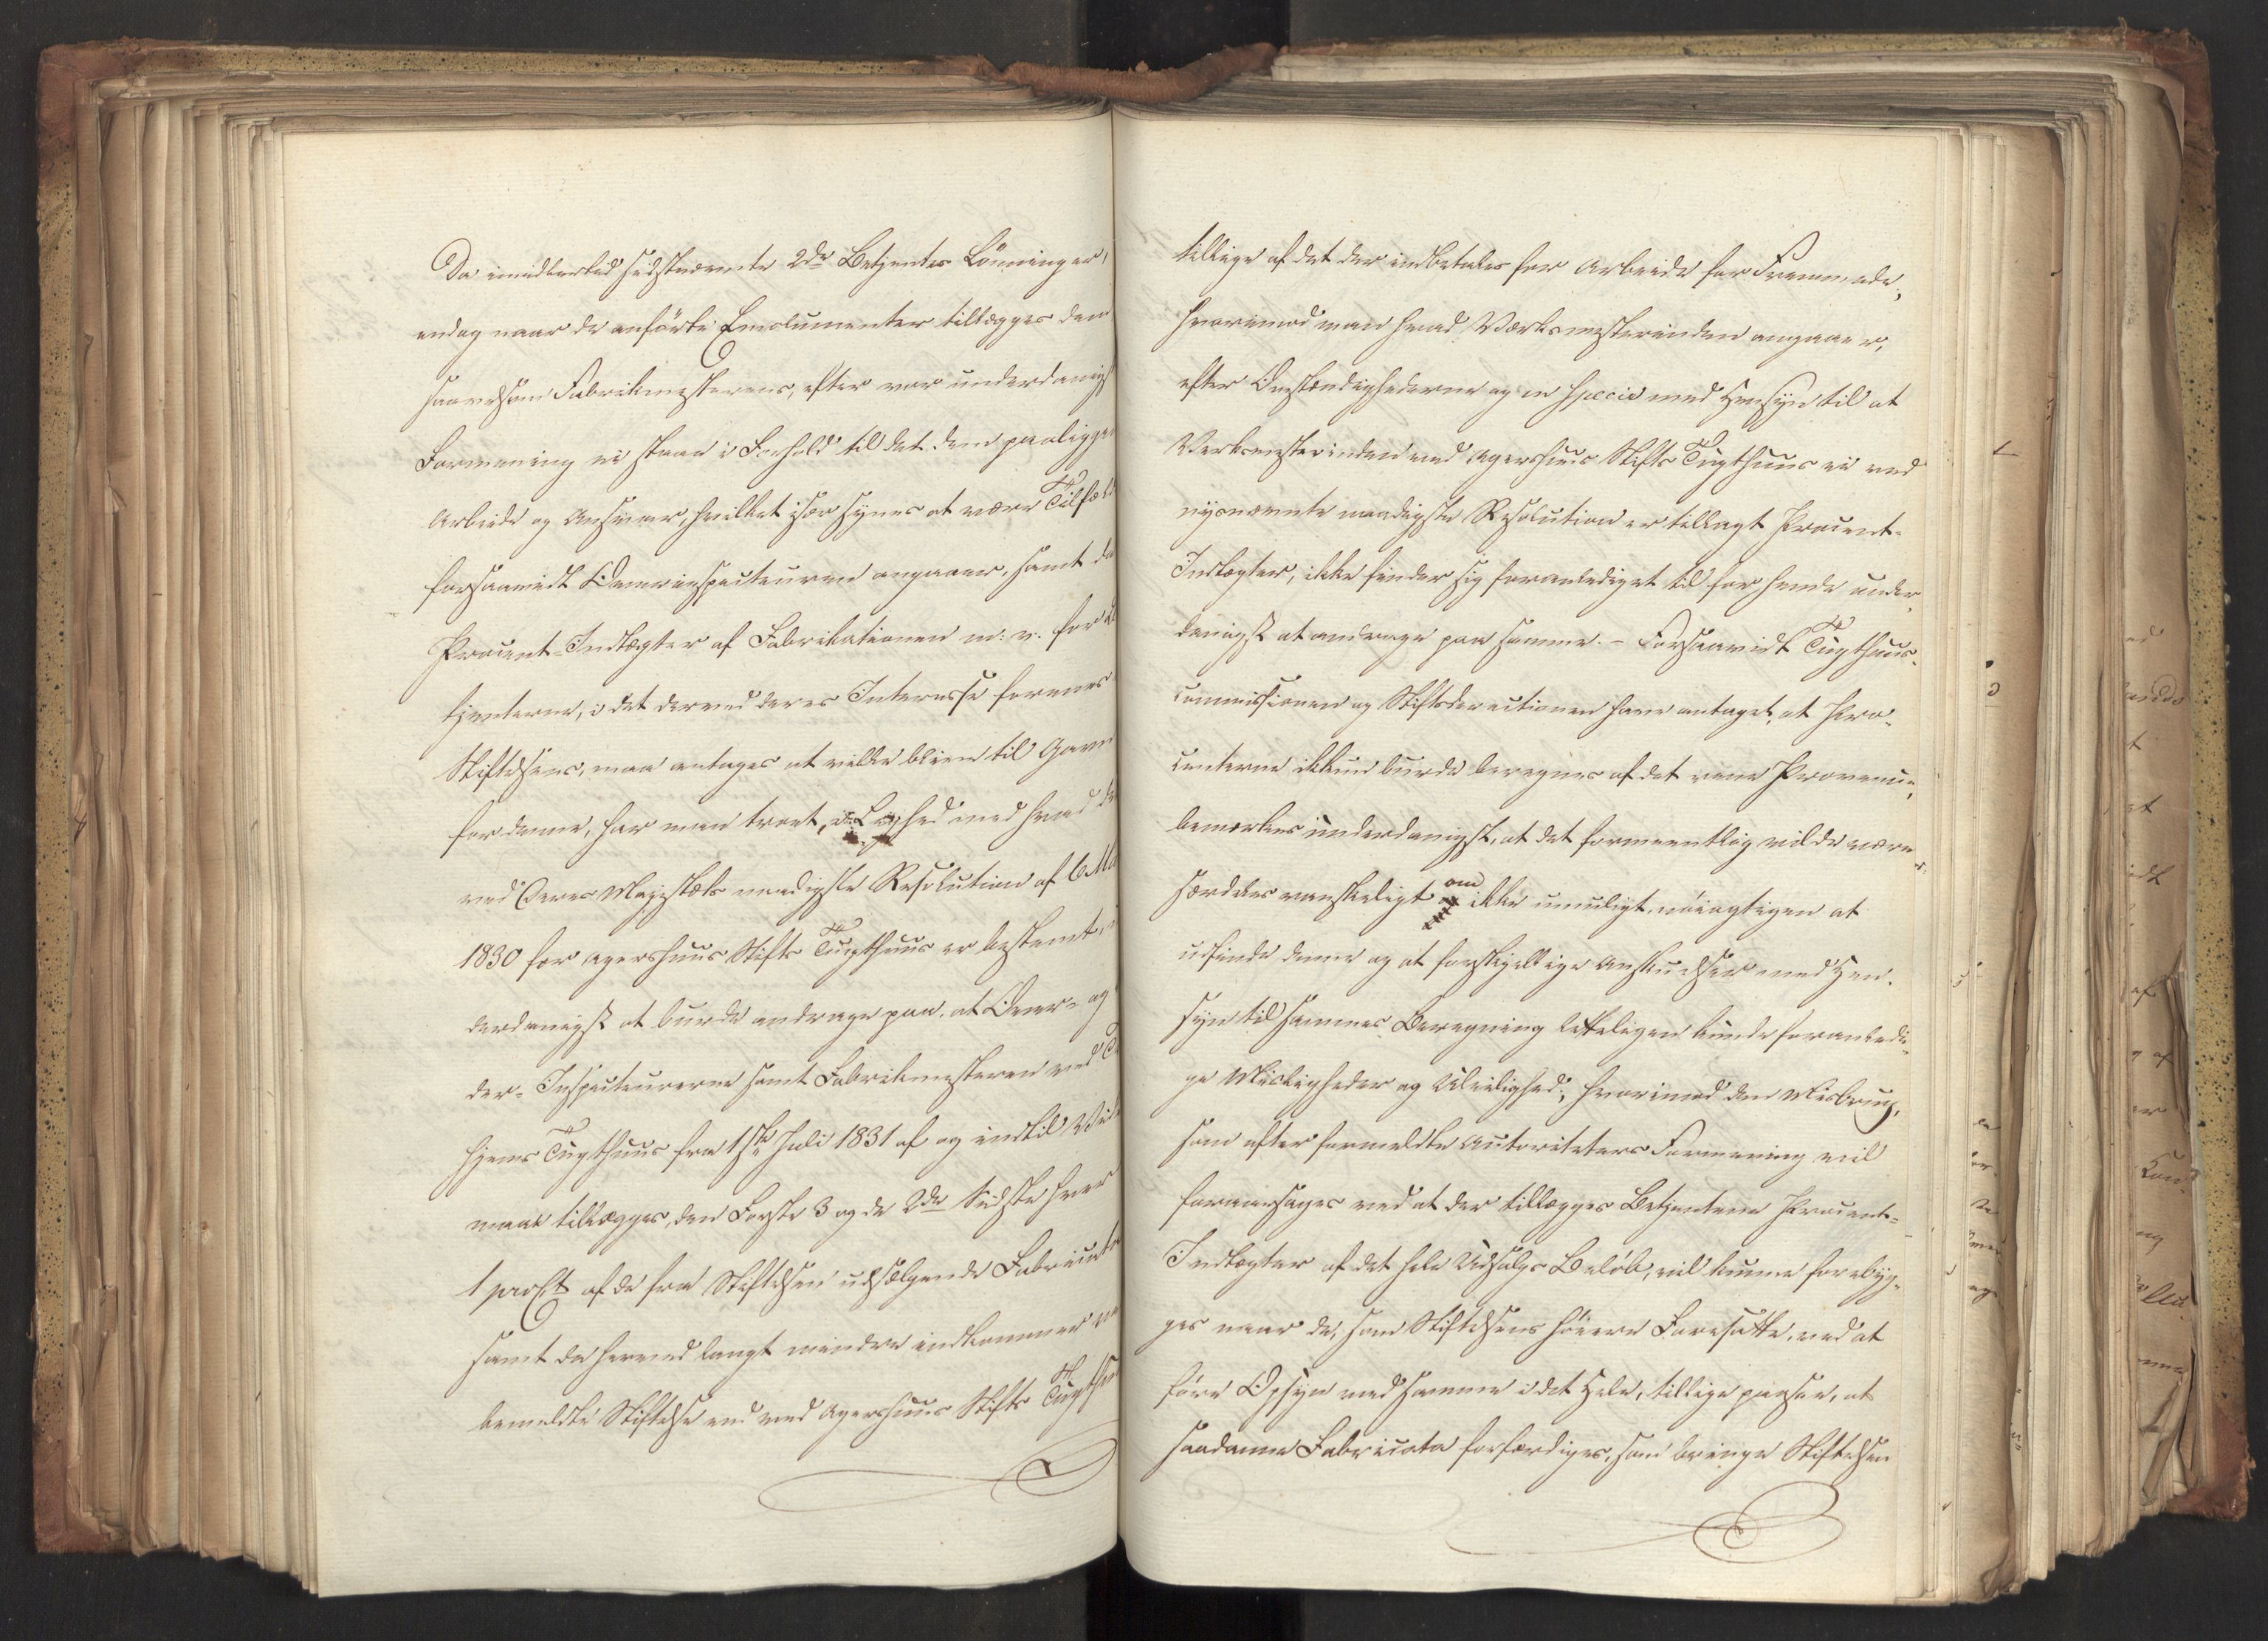 Da imidlertid sidstnævnte 2de Betjentes Lönninger,
endog naar de anförte Emolumenter tillægges dem
saavelsom Fabrikmesterens, efter vor underdanigst
Formening ei staae i Forhold til det dem paaliggen
Arbeide og Ansvar, hvilket især synes at være Tilfæld
forsaavidt Overinspecteuren angaaer, samt da
Procent-Indtægter af Fabrikationen m: v: for
tjenterne, i det derved deres Interesse forenes
Stiftelsens, maa antages at ville blive til Gavn
for denne, har man troet, i Lighed med hvad de
ved Deres Majestæts naadigste Resolution af 6 Ma
1830 for Agershuus Stifts Tugthuus er bestemt,
derdanigst at burde andrage paa, at Over- og
der-Inspecteurerne samt Fabrikmesteren ved
hjems Tugthuus fra 1ste Juli 1831 af og indtil Vid
maae tillægges, den Förste 3 og de 2de Sidste hver
1 proCt af de fra Stiftelsen udsælgende Fabricata
samt da herved langt mindre indkommer
bemeldte Stiftelse end ved Agershuus Stifts Tugthu
tillige af det der indbetales for Arbeide for Fremmede;
hvorimod man hvad Værksmesterinden angaaer,
efter Omstændighederne og in specie med Hensyn til at
Værksmesterinden ved Agershuus Stifts Tugthuus ei ved
nysnævnte naadigste Resolution er tillagt Procent-
Indtægter, ikke finder sig foranlediget til for hende under-
danigst at andrage paa samme. - Forsaavidt Tugthuus-
commissionen og Stiftsdirectionen have antaget, at Pro-
centerne ikkun burde beregnes af det rene Provenu,
bemærkes underdanigst, at det formeentlig vilde være
særdeles vanskeligt om ikke umuligt, nöiagtigen at
udfinde denne og at forskjellige Anskuelser med Hen-
syn til sammes Beregning letteligen kunde foranledi-
ge Misligheder og Uleilighed; hvorimod den Misbrug,
som efter formeldte Autoriteters Formening vil
foraarsages ved at der tillægges Betjentene Procent-
Indtægter af det hele Udsalgs Belöb, vil kunne forebyg-
ges naar de, som Stiftelsens höiere Foresatte, ved at
före Opsyn med samme i det Hele, tillige paasee, at
saadanne Fabricata forfærdiges, som bringe Stiftelsen